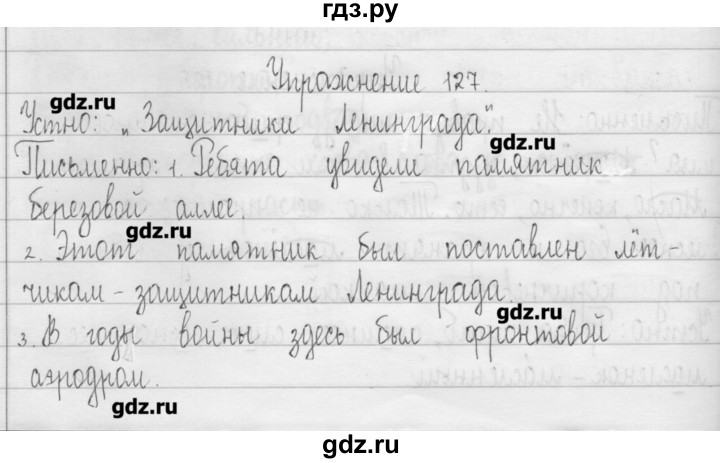 гдз.ру
Упражнение 127.
gdz.ru
gdz.ru
Устно: „Защитники Ленинграда".
Письменно: 1. Ребята увидели памятник
gdz.ru
березовой аллее.
gdz.ru
2. Этот памятник был поставлен лёт-
чикам - защитникам Ленинграда.
gdz.ru
3. В годы войны здесь был фронтовой
аэродром.
gdz.ru
gdz.ru